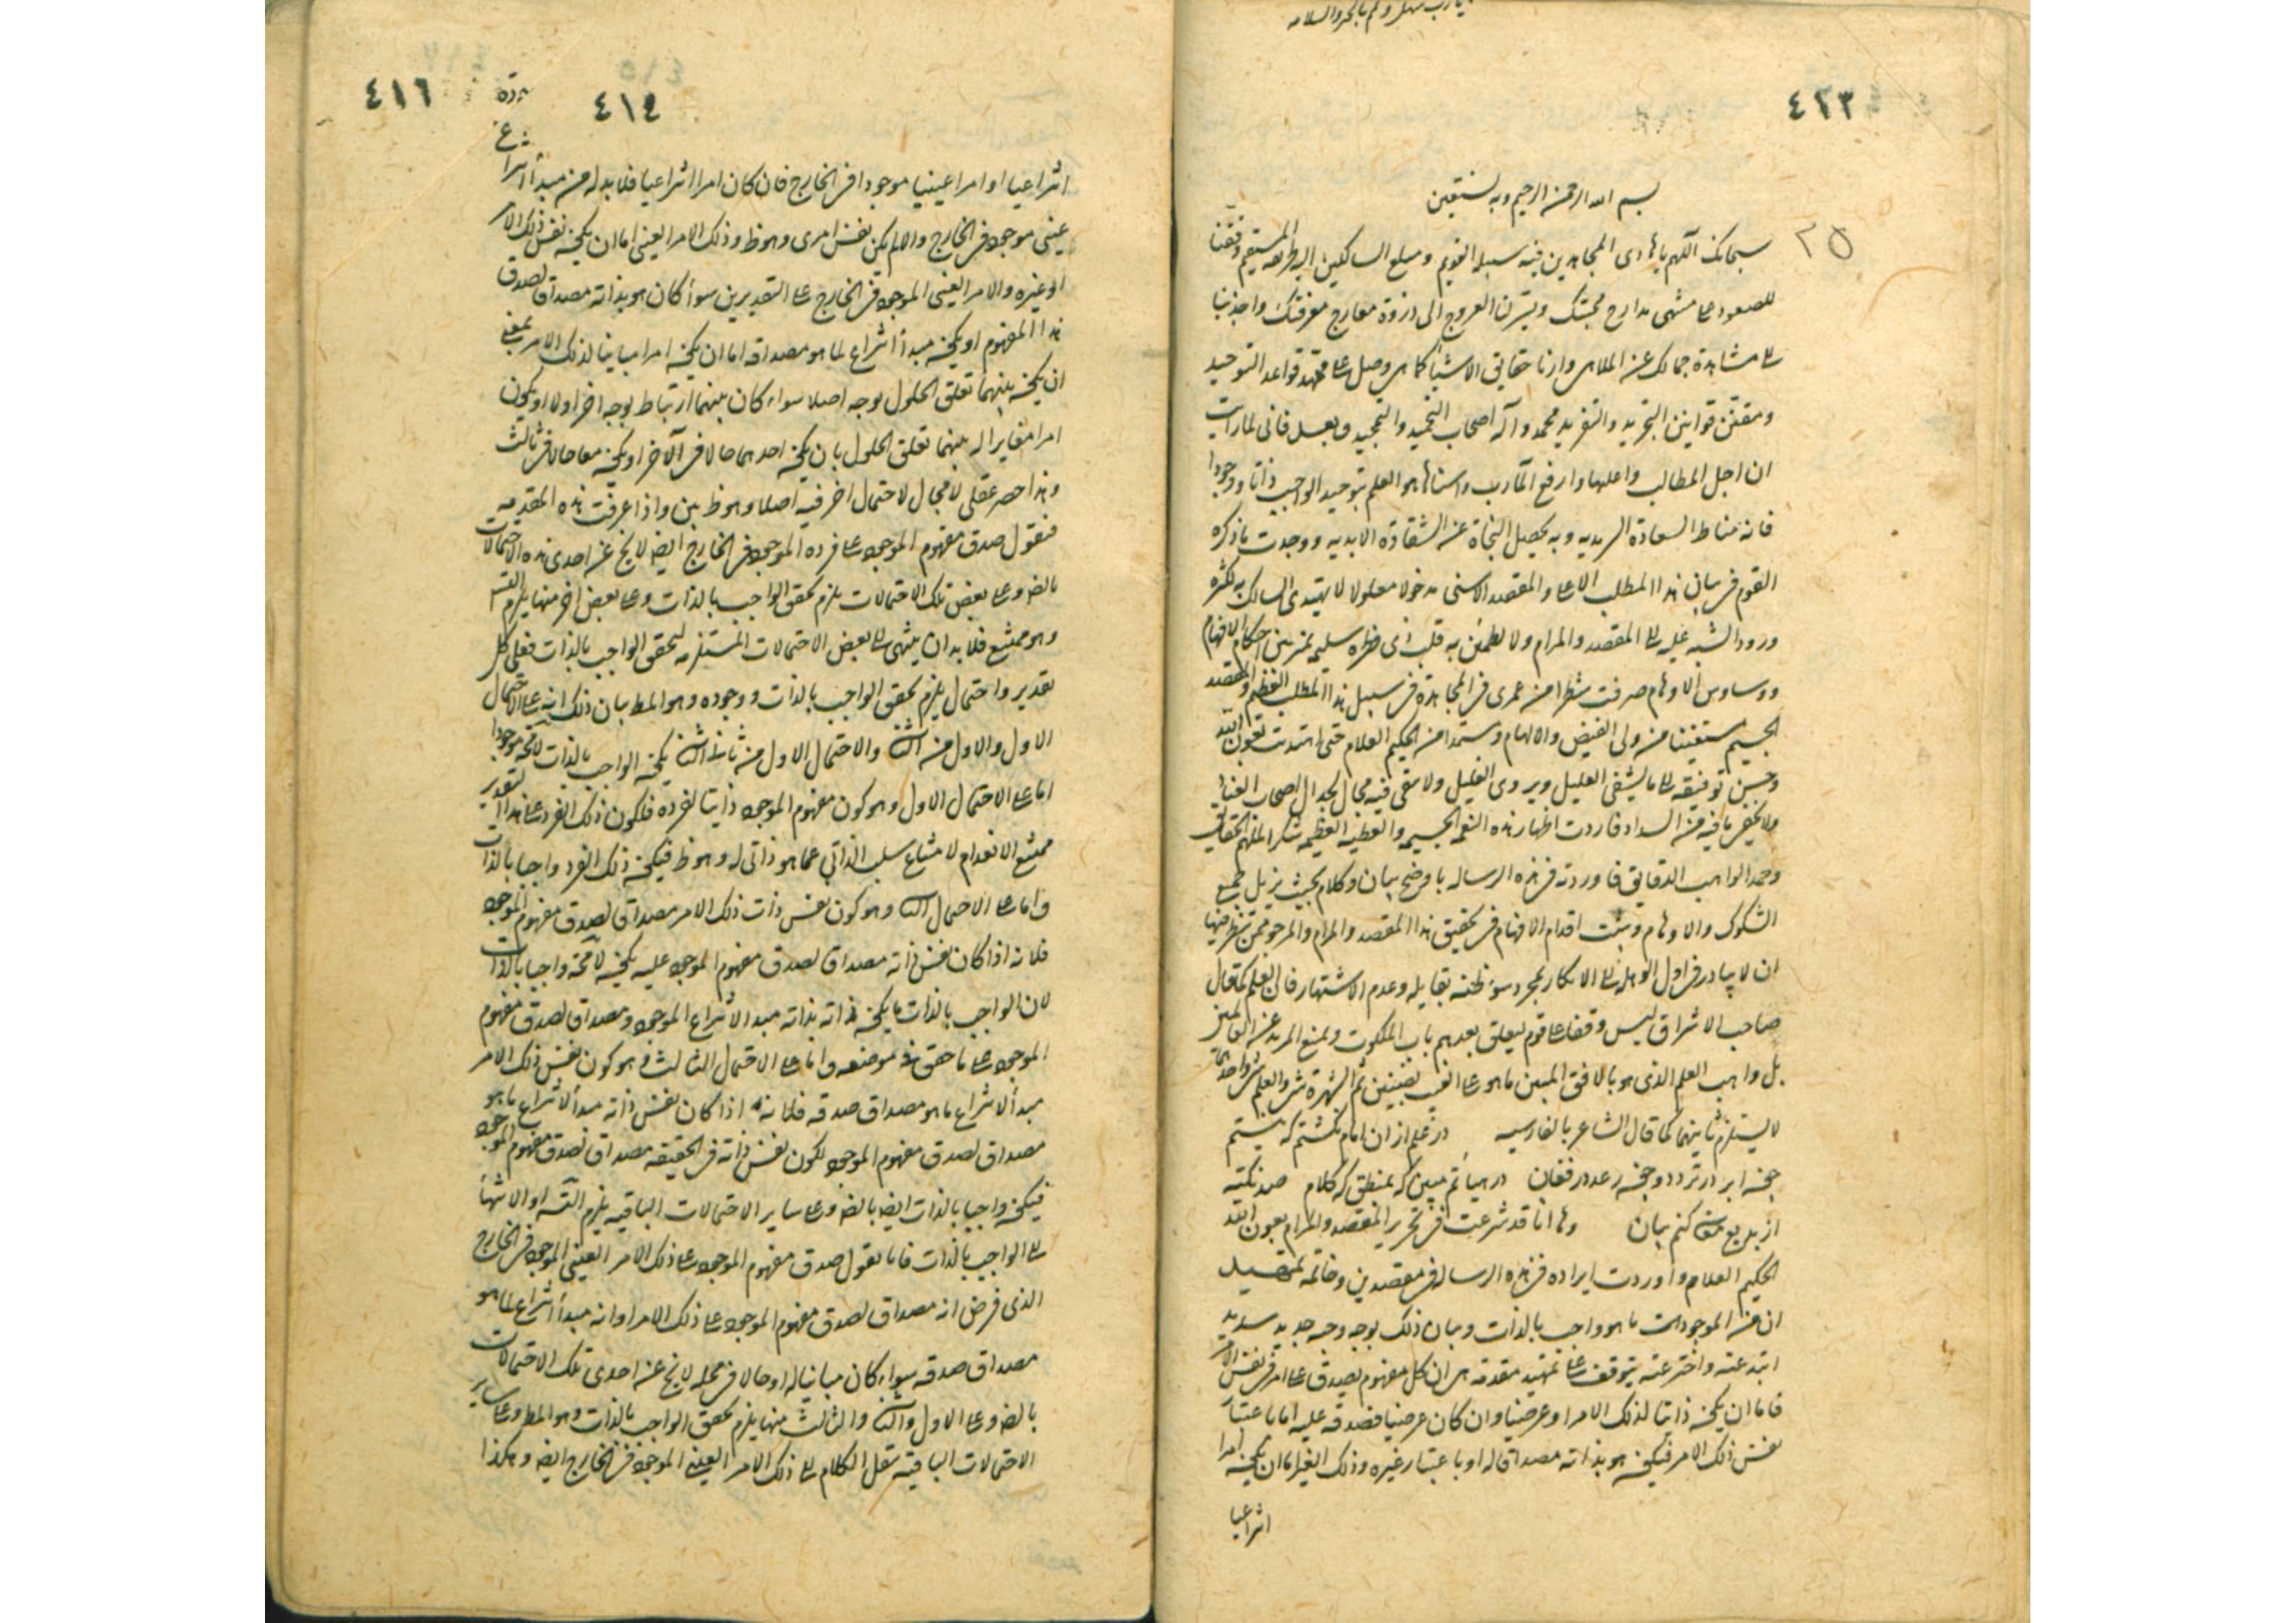 ٤٢٣
بسم الله الرحمن الرحيم وبه نستعين
٢٥
سبحانك اللهم يا هادى المجاهدين فيه سبيله القويم و مبلغ السالكين اليه طريقه المستقيم وفقنا
للصعود على منتهى مدارج محبتك ويسرن العروج الى ذروة معارج معرفتك واجذبنا
الى مشاهدة جمالك عن الملاهى وارنا حقايق الاشيأ كما هى وصل على ممهد قواعد التوحيد
ومقنن قوانين التجريد والتفريد محمد وآله اصحاب التحميد والتمجيد وبعد فانى لما رايت
ان اجل المطالب واعلها وارفع المآرب واسناها هو العلم بتوحيد الواجب ذاتا ووجودا
فانه مناط السعادة السرمديه وبه يحصل النجاة عن الشقاوة الابديه ووجدت ما ذكره
القوم فى بيان هذا المطلب الاعلى والمقصد الاسنى مدخولا معلولا لا يهتدى السالك به لكثرة
ورود الشبه عليه الى المقصد والمرام ولا يطمئن به قلب ذى فطرة سليمه يميز بين احكام الافهام
ووساوس الاوهام صرفت شطرا من عمرى فى المجاهدة فى سبيل هذا المطلب العظيم والمقصد
الجسيم مستفيضا من ولى الفيض والالهام ومستمدا من الحكيم العلام حتى اهتديت بعون الله
وحسن توفيقه الى ما يشفى العليل ويروى الغليل ولا يبقى فيه مجال لجدال اصحاب العناد
ولا يخفى ما فيه من السداد فاردت اظهار هذه النعم الجسيمه والعطيه العظيمه شكرا لملهم الحقايق
وحمد الواهب الدقايق فاوردته فى هذه الرساله باوضح بيان وكلام بحيث يزيل جميع
الشكوك والاوهام ويثبت اقدام الافهام فى تحقيق هذا المقصد والمرام والمرجو ممن نظر فيها
ان لا يبادر فى اول الوهله الى الانكار بمجرد سوء ظنه بقايله وعدم الاشتهار فان العلم كما قال
صاحب الاشراق ليس وقفا على قوم ليغلق بعدهم باب الملكوت ويمنع المزيد عن العالمين
بل واهب العلم الذى هو بالافق المبين ما هو على الغيب بضنين ثم الشهرة شىء والعلم شىء واحدهما
لا يستلزم ثانيهما كما قال الشاعر بالفارسيه در علم از ان امام نگشتم كه نيستم
چون ابر در تردد و چون رعد در فغان در هيأتم مبين كه بمنطق گه كلام صد نكته
از بديع معانى كنم بيان وها انا قد شرعت فى تحرير المقصد والمرام بعون الله
الحكيم العلام واوردت ايراده فى هذه الرساله فى مقصدين وخاتمه
ان من الموجودات ما هو واجب بالذات وبيان ذلك بوجه وجيه جديد سديد
ابتدعته واخترعته يتوقف على تمهيد مقدمه هى ان كل مفهوم يصدق على امر فى نفس الامر
فاما ان يكون ذاتيا لذلك الامر او عرضيا وان كان عرضيا فصدقه عليه اما باعتبار
نفس ذلك الامر فيكون هو بذاته مصداقا له او باعتبار غيره وذلك الغير اما ان يكون امرا
انتزاعيا
٤١٤
٤١٦
انتزاعيا او امرا عينيا موجودا فى الخارج فان كان امرا انتزاعيا فلا بد له من مبدأ انتزاع
عينى موجود فى الخارج والا لم يكن نفس امرى وهو ظ وذلك الامر العينى اما ان يكون نفس ذلك الامر
او غيره والامر العينى الموجود فى الخارج على التقديرين سوأ كان هو بذاته مصداقا لصدق
هذا المفهوم او يكون مبدأ انتزاع لما هو مصداقه اما ان يكون امرا مباينا لذلك الامر بمعنى
ان يكون بينهما تعلق الحلول بوجه اصلا سواء كان بينهما ارتباط بوجه اخر اولا او يكون
امرا مغايرا له بينهما تعلق الحلول بان يكون احدهما حالا فى الآخر او يكون معا حالا فى ثالث
وهذا حصر عقلى لا مجال لاحتمال اخر فيه اصلا وهو ظ بين واذا عرفت هذه المقدمه
فنقول صدق مفهوم الموجود على فرده الموجود فى الخارج ايضا لا يخ عن احدى هذه الاحتمالات
بالضه وعلى بعض تلك الاحتمالات يلزم تحقق الواجب بالذات وعلى بعض اخر منها يلزم التس
وهو ممتنع فلا بد ان ينتهى الى بعض الاحتمالات المستلزمه لتحقق الواجب بالذات فعلى كل
تقدير واحتمال يلزم تحقق الواجب بالذات ووجوده وهو المط بيان ذلك انه على الاحتمال
الاول والاول من الثانى والاحتمال الاول من ثانى الثانى يكون الواجب بالذات لا محه موجودا
اما على الاحتمال الاول وهو كون مفهوم الموجود ذاتيا لفرده فلكون ذلك الفرد على هذا التقدير
ممتنع الانعدام لامتناع سلب الذاتى عما هو ذاتى له وهو ظ فيكون ذلك الفرد واجبا بالذات
واما على الاحتمال الثانى وهو كون نفس ذات ذلك الامر مصداقا لصدق مفهوم الموجود
فلانه اذا كان نفس ذاته مصداقا لصدق مفهوم الموجود عليه يكون لا محه واجبا بالذات
لان الواجب بالذات ما يكون ذاته بذاته مبدا لانتزاع الموجود ومصداقا لصدق مفهوم
الموجود على ما حقق فى موضعه واما على الاحتمال الثالث وهو كون نفس ذلك الامر
مبدأ لانتزاع ما هو مصداق صدقه فلانه اذا كان نفس ذاته مبدأ لانتزاع ما هو
مصداق لصدق مفهوم الموجود لكون نفس ذاته فى الحقيقه مصداقا لصدق مفهوم الموجود
فيكون واجبا بالذات ايضا بالضه وعلى ساير الاحتمالات الباقيه يلزم التس او الانتهأ
الى الواجب بالذات فانا نقول صدق مفهوم الموجود على ذلك الامر العينى الموجود فى الخارج
الذى فرض انه مصداق لصدق مفهوم الموجود على ذلك الامر او انه مبدأ انتزاع لما هو
مصداق صدقه سواء كان مباينا له او حالا فى محله لا يخ عن احدى تلك الاحتمالات
بالضه وعلى الاول والثانى والثالث منها يلزم تحقق الواجب بالذات وهو المط وعلى ساير
الاحتمالات الباقية ننقل الكلام الى ذلك الامر العينى الموجود فى الخارج ايضا وهكذا